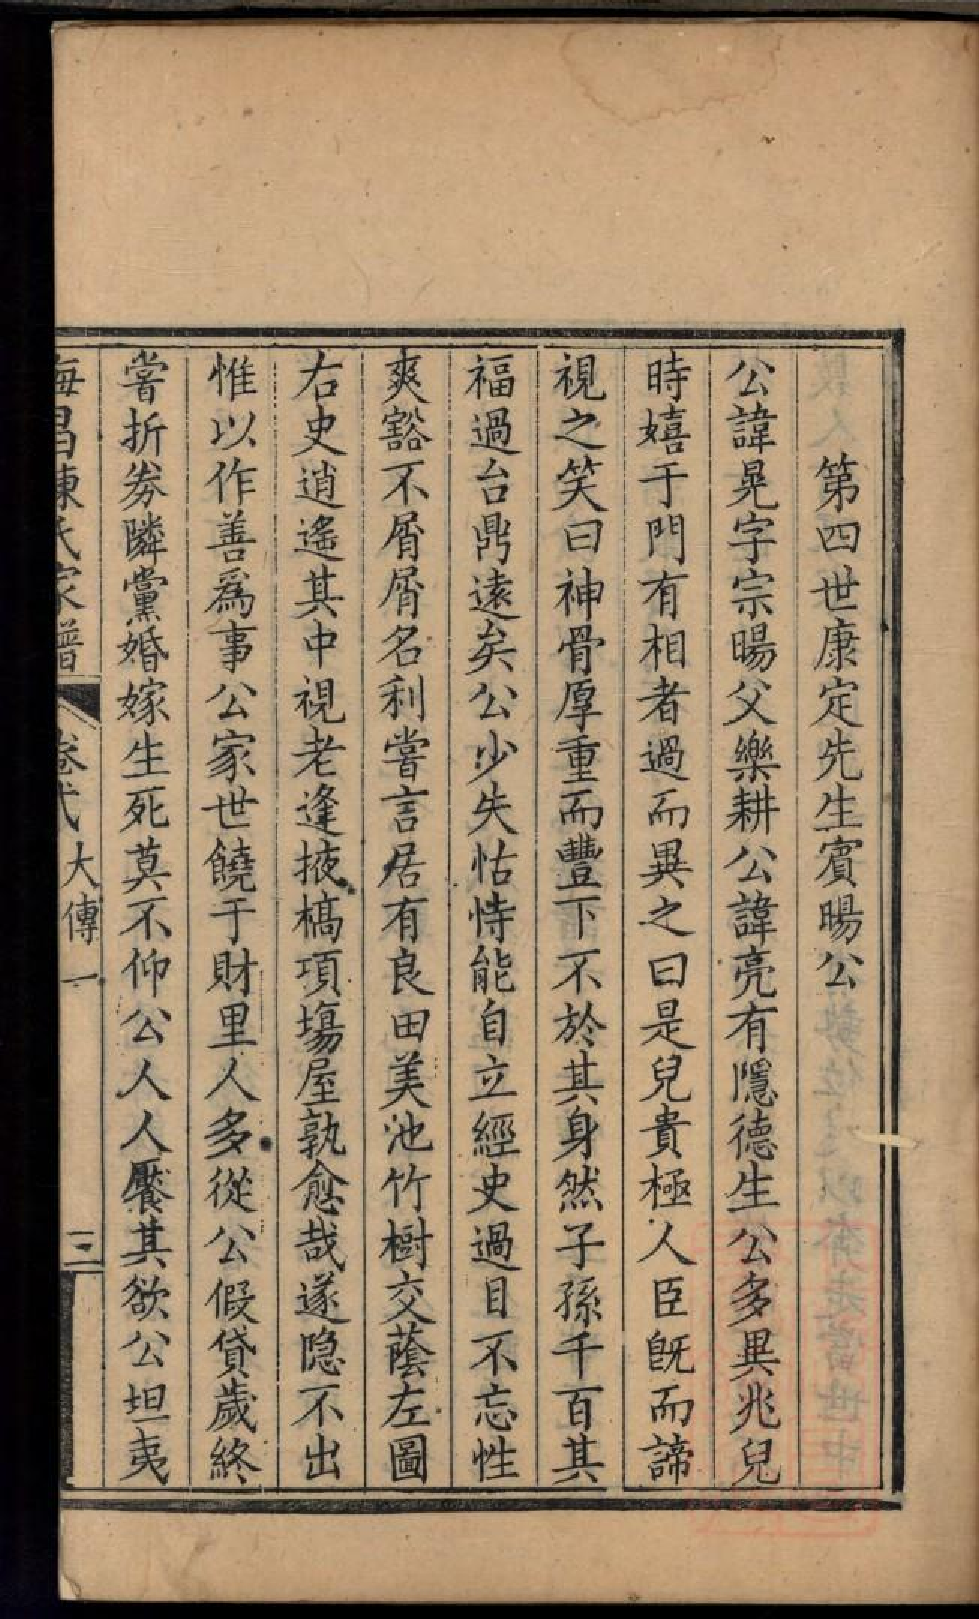 第四世康定先生賓暘公
公諱晃字宗暘父樂耕公諱亮有隱德生公多異兆兒
時嬉于門有相者過而異之曰是兒貴極人臣旣而諦
視之笑曰神骨厚重而豐下不於其身然子孫千百其
福過台鼎遠矣公少失怙恃能自立經史過目不忘性
爽豁不屑屑名利嘗言居有良田美池竹樹交蔭左圖
右史逍遙其中視老逢掖槁項塲屋孰愈哉遂隱不出
惟以作善爲事公家世饒于財里人多從公假貸歲終
嘗折券隣黨婚嫁生死莫不仰公人人饜其欲公坦夷
海昌陳氏家譜 卷弍 大傳一 三